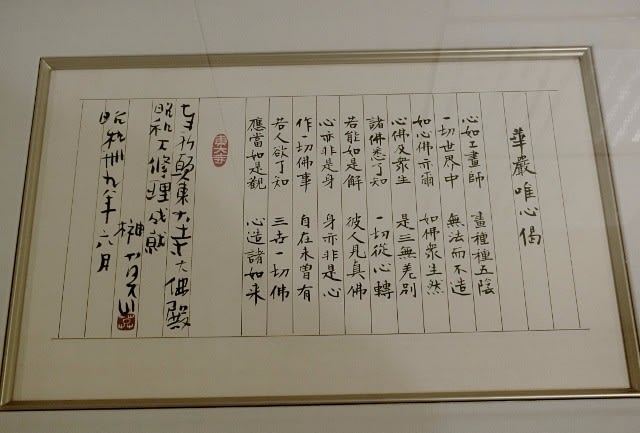 華嚴唯心偈
心如工畫師 畫種種五陰
一切世界中 無法而不造
如心佛亦爾 如佛衆生然
心佛及衆生 是三無差别
諸佛悉了知 一切從心轉
若能如是解 彼人見真佛
心亦非是身 身亦非是心
作一切佛事 自在未曽有
若人欲了知 三世一切佛
應當如是觀 心造諸如来
奉祈願東大寺大佛殿
昭和大修理成就
榊莫山
昭和卌九年六月